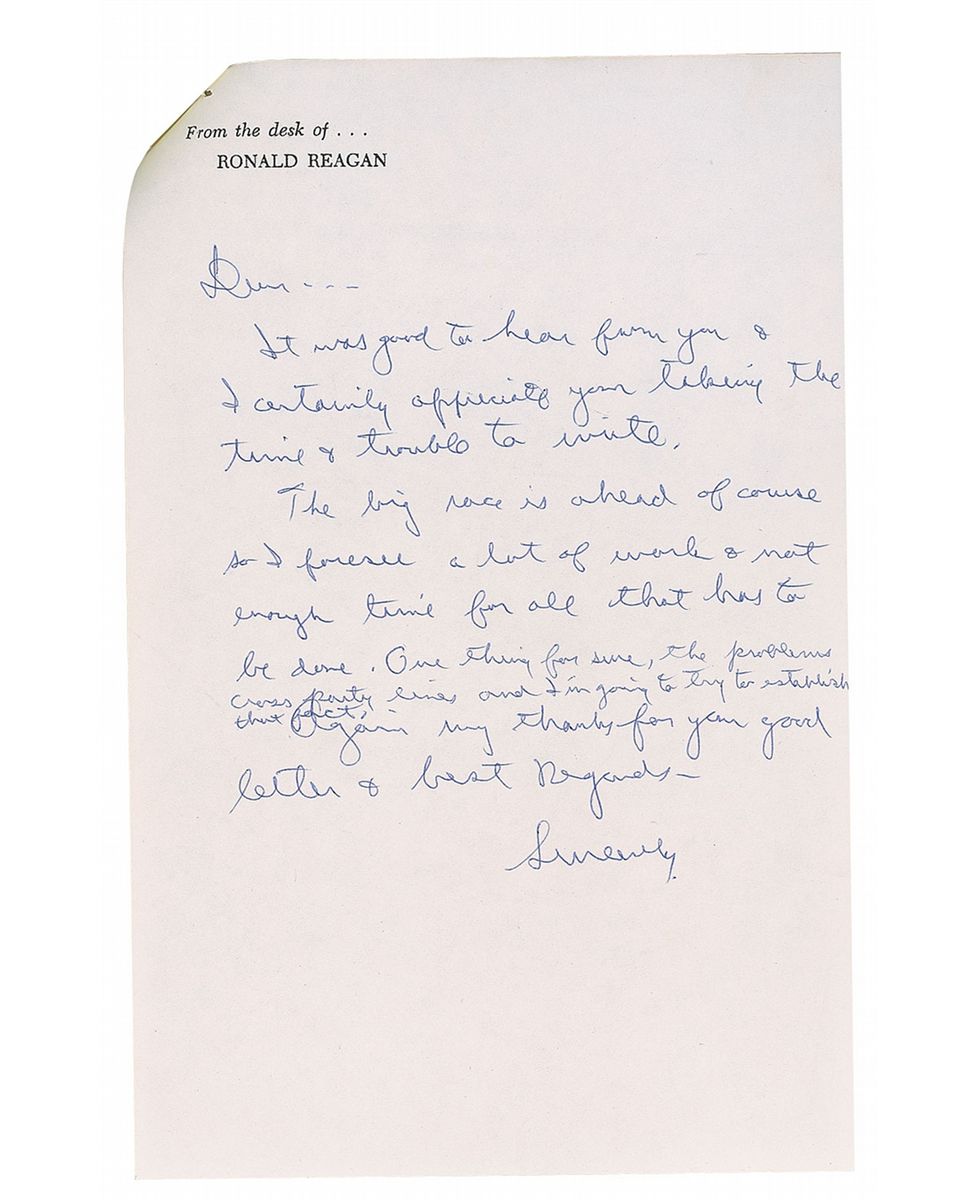 From the desk of . . .
RONALD REAGAN
Dear - - -
It was good to hear from you &
I certainly appreciate your taking the
time & trouble to write.
The big race is ahead of course
so I foresee a lot of work & not
enough time for all that has to
be done. One thing for sure, the problems
cross party lines and I'm going to try to establish
that fact.
Again my thanks for your good
letter & best Regards—
Sincerely,